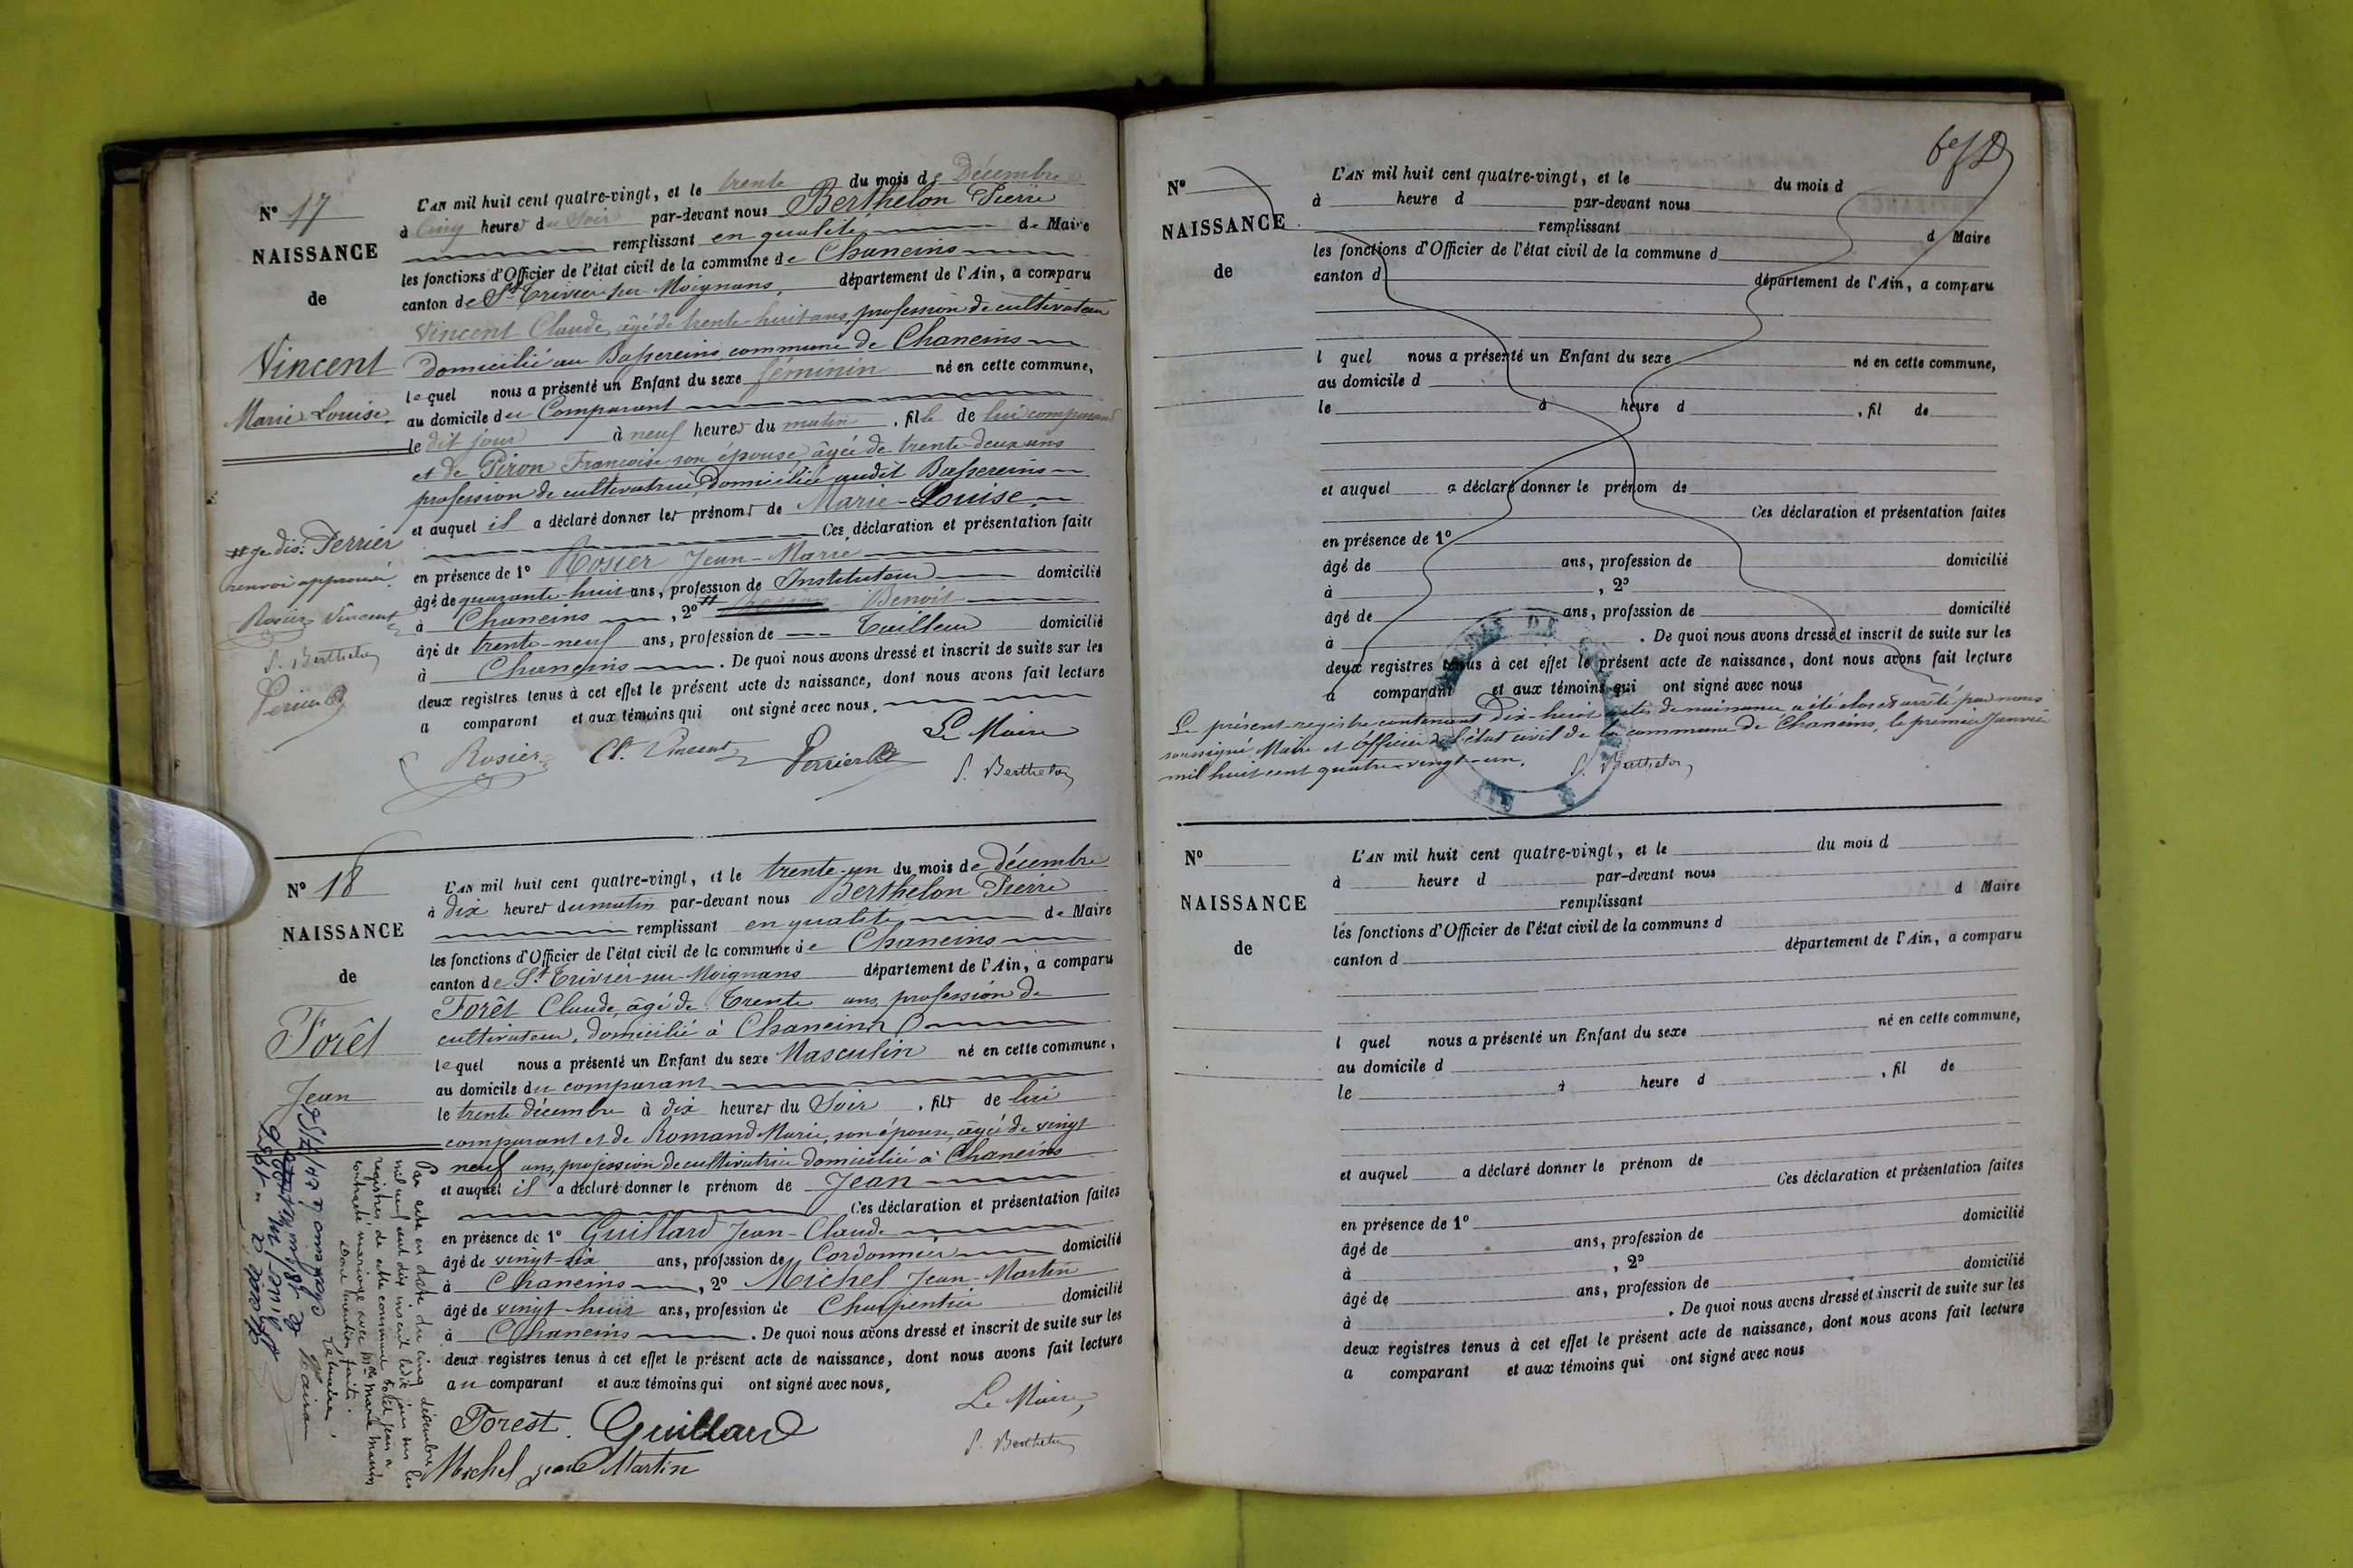 N° 17
NAISSANCE
de
Vincent
Marie Louise
L'AN mil huit cent quatre-vingt, et le trente du mois de Décembre
à Cinq heures du Soir par-devant nous Berthelon Pierre
remplissant en qualité de Maire
les fonctions d'Officier de l'état civil de la commune de Chaneins
canton de St Trivier sur Moignans, département de l'Ain, a comparu
Vincent Claude, âgé de trente-huit ans, profession de cultivateur
domicilié au Bassereins commune de Chaneins
lequel nous a présenté un Enfant du sexe féminin né en cette commune,
au domicile du Comparant
le dit jour à neuf heures du matin, fille de lui comparant
et de Piron Françoise son épouse âgée de trente-deux ans
profession de cultivatrice, domiciliée audit Bassereins
et auquel il a déclaré donner les prénoms de Marie-Louise
Ces déclaration et présentation faite
en présence de 1° Rosier Jean-Marie
âgé de quarante-huit ans, profession de Instituteur domicilié
à Chaneins, 2° # Benoit
âgé de trente-neuf ans, profession de Tailleur domicilié
à Chaneins. De quoi nous avons dressé et inscrit de suite sur les
deux registres tenus à cet effet le présent acte de naissance, dont nous avons fait lecture
a comparant et aux témoins qui ont signé avec nous.
# je dis: Perrier
renvoi approuvé.
Rosier Vincent
P. Berthelon
Perrier B
Le Maire
Rosier Cl. Vincent Perrier B
P. Berthelon
N° 18
NAISSANCE
de
Forêt
Jean
L'AN mil huit cent quatre-vingt, et le trente-un du mois de décembre
à dix heures du matin par-devant nous Berthelon Pierre
remplissant en qualité de Maire
les fonctions d'Officier de l'état civil de la commune de Chaneins
canton de St Trivier-sur-Moignans département de l'Ain, a comparu
Forêt Claude, âgé de Trente ans, profession de
cultivateur, domicilié à Chaneins
lequel nous a présenté un Enfant du sexe Masculin né en cette commune,
au domicile du comparant
le trente décembre à dix heures du Soir, fils de lui
comparant et de Romand Marie, son épouse, âgée de vingt
neuf ans, profession de cultivatrice domiciliée à Chaneins
et auquel il a déclaré donner le prénom de Jean
Ces déclaration et présentation faites
en présence de 1° Guillard Jean-Claude
âgé de vingt-six ans, profession de Cordonnier domicilié
à Chaneins, 2° Michel Jean-Martin
âgé de vingt huit ans, profession de Charpentier domicilié
à Chaneins. De quoi nous avons dressé et inscrit de suite sur les
deux registres tenus à cet effet le présent acte de naissance, dont nous avons fait lecture
au comparant et aux témoins qui ont signé avec nous,
Le Maire,
Forest. Guillard
P. Berthelon
Michel jean Martin
Par acte en date du cinq décembre
mil neuf cent dix inscrit ledit jour sur les
registres de cette commune Forêt Jean a
contracté mariage avec Melle Marie
Dont mention faite.
N° NAISSANCE
de
L'AN mil huit cent quatre-vingt, et le du mois d
à heure d par-devant nous
remplissant d Maire
les fonctions d'Officier de l'état civil de la commune d
canton d département de l'Ain, a comparu
l quel nous a présenté un Enfant du sexe né en cette commune,
au domicile d
le à heure d, fil de
et auquel a déclaré donner le prénom de
Ces déclaration et présentation faites
en présence de 1°
âgé de ans, profession de domicilié
à, 2°
âgé de ans, profession de domicilié
à. De quoi nous avons dressé et inscrit de suite sur les
deux registres tenus à cet effet le présent acte de naissance, dont nous avons fait lecture
a comparant et aux témoins qui ont signé avec nous
Le présent registre contenant Dix-huit actes de naissance a été clos et arrêté par nous
soussigné Maire et Officier de l'état civil de la commune de Chaneins, le premier Janvier
mil huit cent quatre-vingt-un. P. Berthelon
N°
NAISSANCE
de
L'AN mil huit cent quatre-vingt, et le du mois d
à heure d par-devant nous
remplissant d Maire
les fonctions d'Officier de l'état civil de la commune d
canton d département de l'Ain, a comparu
l quel nous a présenté un Enfant du sexe né en cette commune,
au domicile d
le à heure d, fil de
et auquel a déclaré donner le prénom de
Ces déclaration et présentation faites
en présence de 1°
âgé de ans, profession de domicilié
à, 2°
âgé de ans, profession de domicilié
à. De quoi nous avons dressé et inscrit de suite sur les
deux registres tenus à cet effet le présent acte de naissance, dont nous avons fait lecture
a comparant et aux témoins qui ont signé avec nous